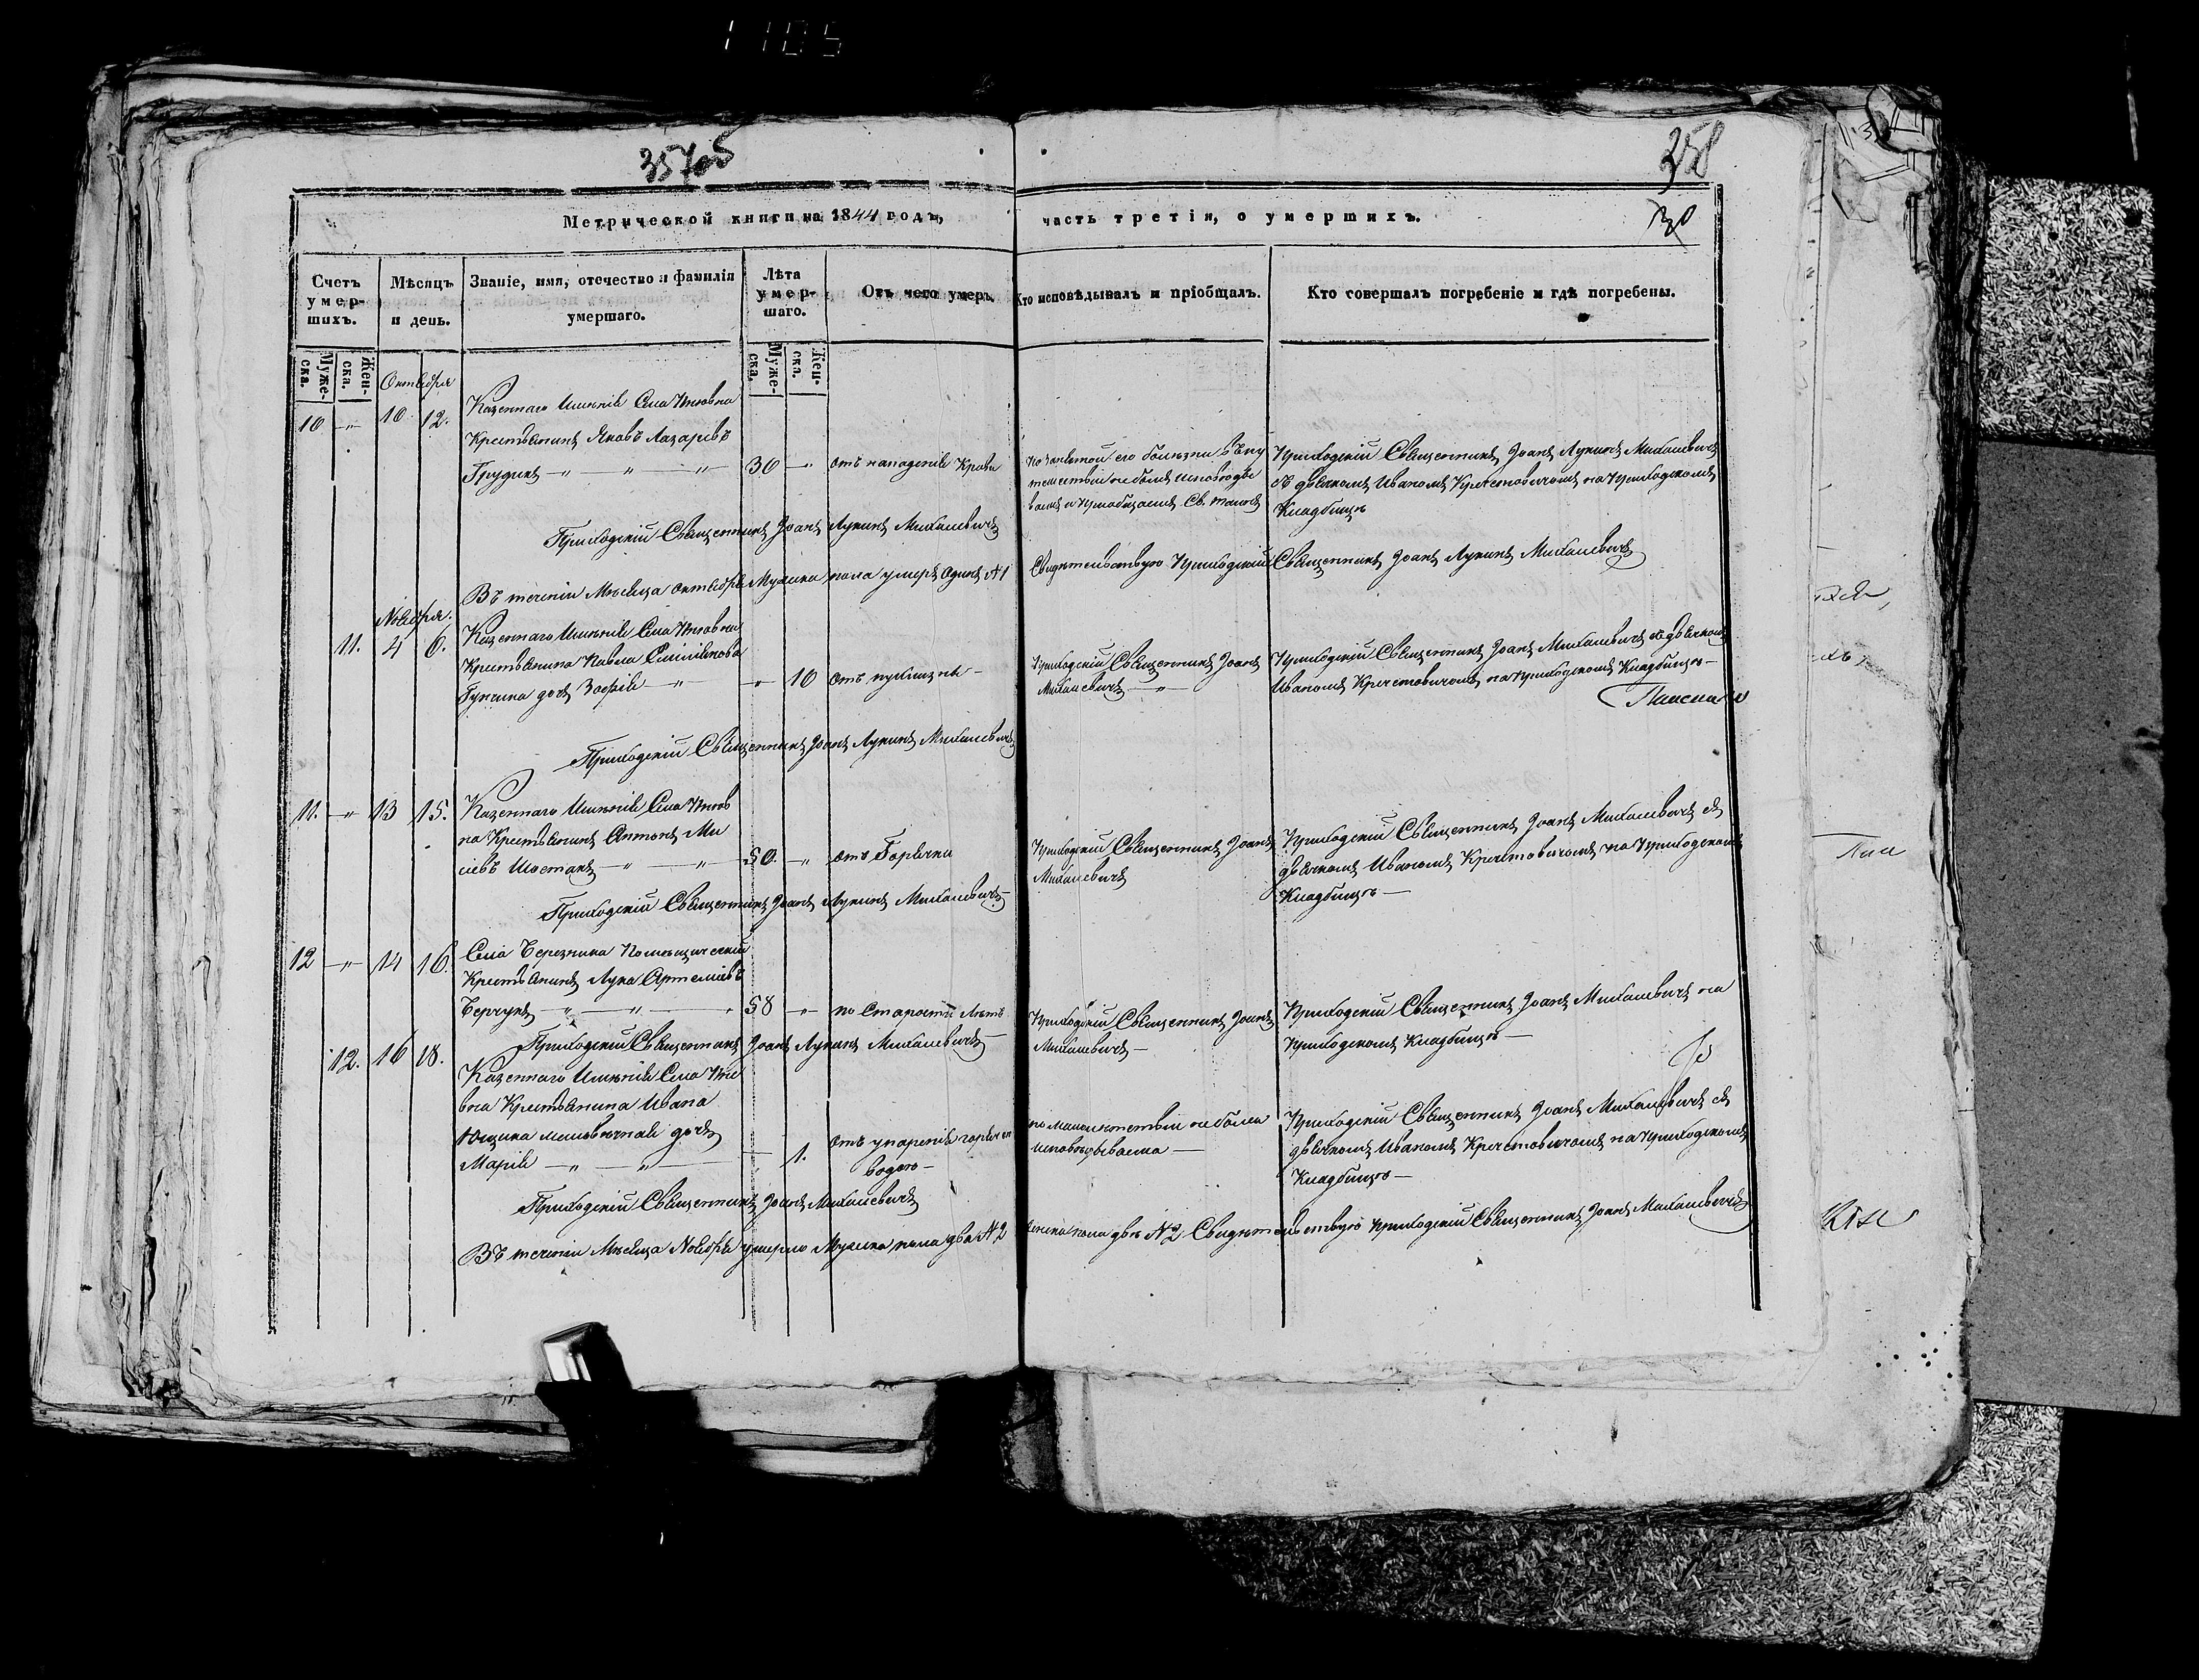 1105
357об
358
Метрической книги на 1844 годъ,
часть третія, о умершихъ.
30
Счетъ умер-шихъ.
Мѣсяцъ и день.
Званіе, имя, отечество и фамилія умершаго.
Лѣта умер-шаго.
Отъ чего умеръ.
Кто исповѣдывалъ и пріобщалъ.
Кто совершалъ погребеніе и гдѣ погребены.
Муже-ска.
Жен-ска.
Муже-ска.
Жен-ска.
Октября
10 — 10. 12.
Казеннаго Имѣнія Села
Крестьянинъ Яковъ Лазаревъ
Грудинъ — 30 — отъ нападенія Крови
его болѣзни
не былъ исповѣды
ванъ и пріобщаемъ Св. Таинъ
Приходскій Священникъ Іоанъ Лукинъ Михалевичъ
съ дьячкомъ Иваномъ Кречетовичомъ на приходскомъ
Кладбищѣ
Приходскій Священникъ Іоанъ Лукинъ Михалевичъ
Въ теченіи Мѣсяца Октября Мужска пола умеръ Одинъ №1
Свидѣтельствую Приходскій Священникъ Іоанъ Лукинъ Михалевичъ
Ноября.
11. 4 6.
Казеннаго Имѣнія Села
Крестьянина Павла
дочь Зофія — 10 отъ пухлизны —
Приходскій Священникъ Іоанъ
Михалевичъ —
Приходскій Священникъ Іоанъ Михалевичъ съ дьячкомъ
Иваномъ Кречетовичомъ, на приходскомъ Кладбищѣ —
Приходскій Священникъ Іоанъ Лукинъ Михалевичъ
11. — 13 15.
Казеннаго Имѣнія Села
на Крестьянинъ Антонъ
Шостакъ — 50. — отъ Горячки
Приходскій Священникъ Іоанъ
Михалевичъ
Приходскій Священникъ Іоанъ Михалевичъ съ
дьячкомъ Иваномъ Кречетовичомъ, на приходскомъ
Кладбищѣ —
Приходскій Священникъ Іоанъ Лукинъ Михалевичъ —
12 — 14 16.
Села Березника Помѣщическій
Крестьянинъ Лука Артеміевъ
Берчукъ — 58 — по Старости Лѣтъ
Приходскій Священникъ Іоанъ
Михалевичъ —
Приходскій Священникъ Іоанъ Михалевичъ на
приходскомъ Кладбищѣ —
Приходскій Священникъ Іоанъ Лукинъ Михалевичъ —
12. 16 18.
Казеннаго Имѣнія Села
вна Крестьянина Ивана
Ющика малолѣтная дочь
Марія — 1. отъ упаренія горячей
водою —
по малолѣтствіи не была
исповѣдываема —
Приходскій Священникъ Іоанъ Михалевичъ съ
дьячкомъ Иваномъ Кречетовичомъ на приходскомъ
Кладбищѣ —
Приходскій Священникъ Іоанъ Михалевичъ
Въ теченіи Мѣсяца Ноября умерло Мужска пола два №2
Женска пола двѣ №2 Свидѣтельствую Приходскій Священникъ Іоанъ Михалевичъ